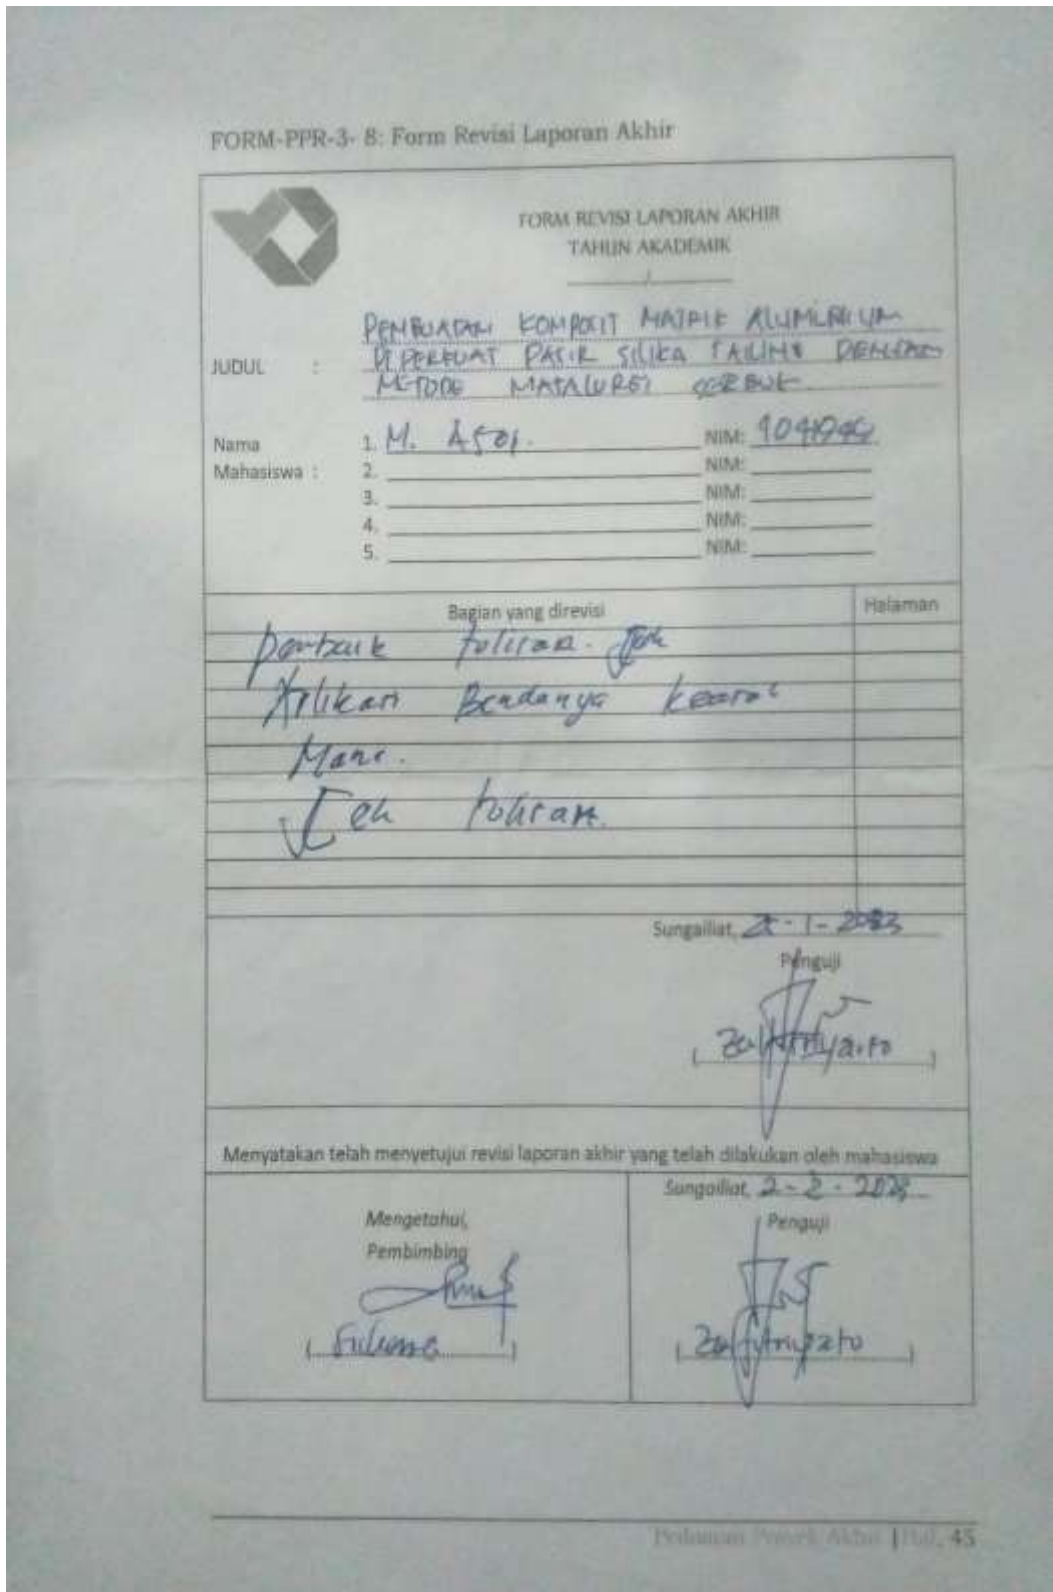 FORM-PPR-3- 8: Form Revisi Laporan Akhir
FORM REVISI LAPORAN AKHIR
TAHUN AKADEMIK
/
JUDUL :
PEMBUATAN KOMPOSIT MATRIK ALUMINIUM
DIPERKUAT PASIR SILIKA TAILING DENGAN
METODE METALURGI SERBUK
Nama
Mahasiswa :
1. M. NIM:
2. NIM:
3. NIM:
4. NIM:
5. NIM:
Bagian yang direvisi Halaman
tulisan.
Aplikasi Bendanya kearah
Mana.
tulisan.
Sungailiat, -1-2023
Penguji
Menyatakan telah menyetujui revisi laporan akhir yang telah dilakukan oleh mahasiswa
Sungailiat, 2-2-2023
Mengetahui,
Pembimbing
Penguji
Pedoman Proyek Akhir | Hal. 45